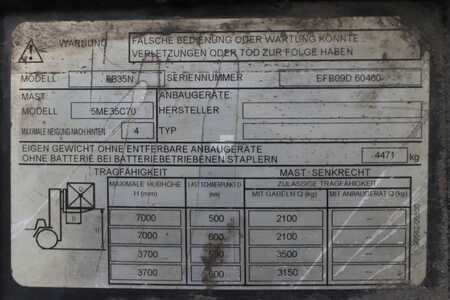 WARNUNG
FALSCHE BEDIENUNG ODER WARTUNG KÖNNTE
VERLETZUNGEN ODER TOD ZUR FOLGE HABEN
MODELL
35N
SERIENNUMMER
EFB09D 60460
MAST
MODELL
5ME35C70
ANBAUGERÄTE
HERSTELLER
MAXIMALE NEIGUNG NACH HINTEN
4
TYP
EIGEN GEWICHT OHNE ENTFERBARE ANBAUGERÄTE
OHNE BATTERIE BEI BATTERIEBETRIEBENEN STAPLERN
4471
kg
TRAGFÄHIGKEIT
MAST-SENKRECHT
MAXIMALE HUBHÖHE
H (mm)
LASTSCHWERPUNKT D
(mm)
ZULÄSSIGE TRAGFÄHIGKEIT
MIT GABELN Q (kg)
MIT ANBAUGERÄT Q (kg)
7000 500 2100 –
7000 600 2100 –
3700 500 3500 –
3700 600 3150 –